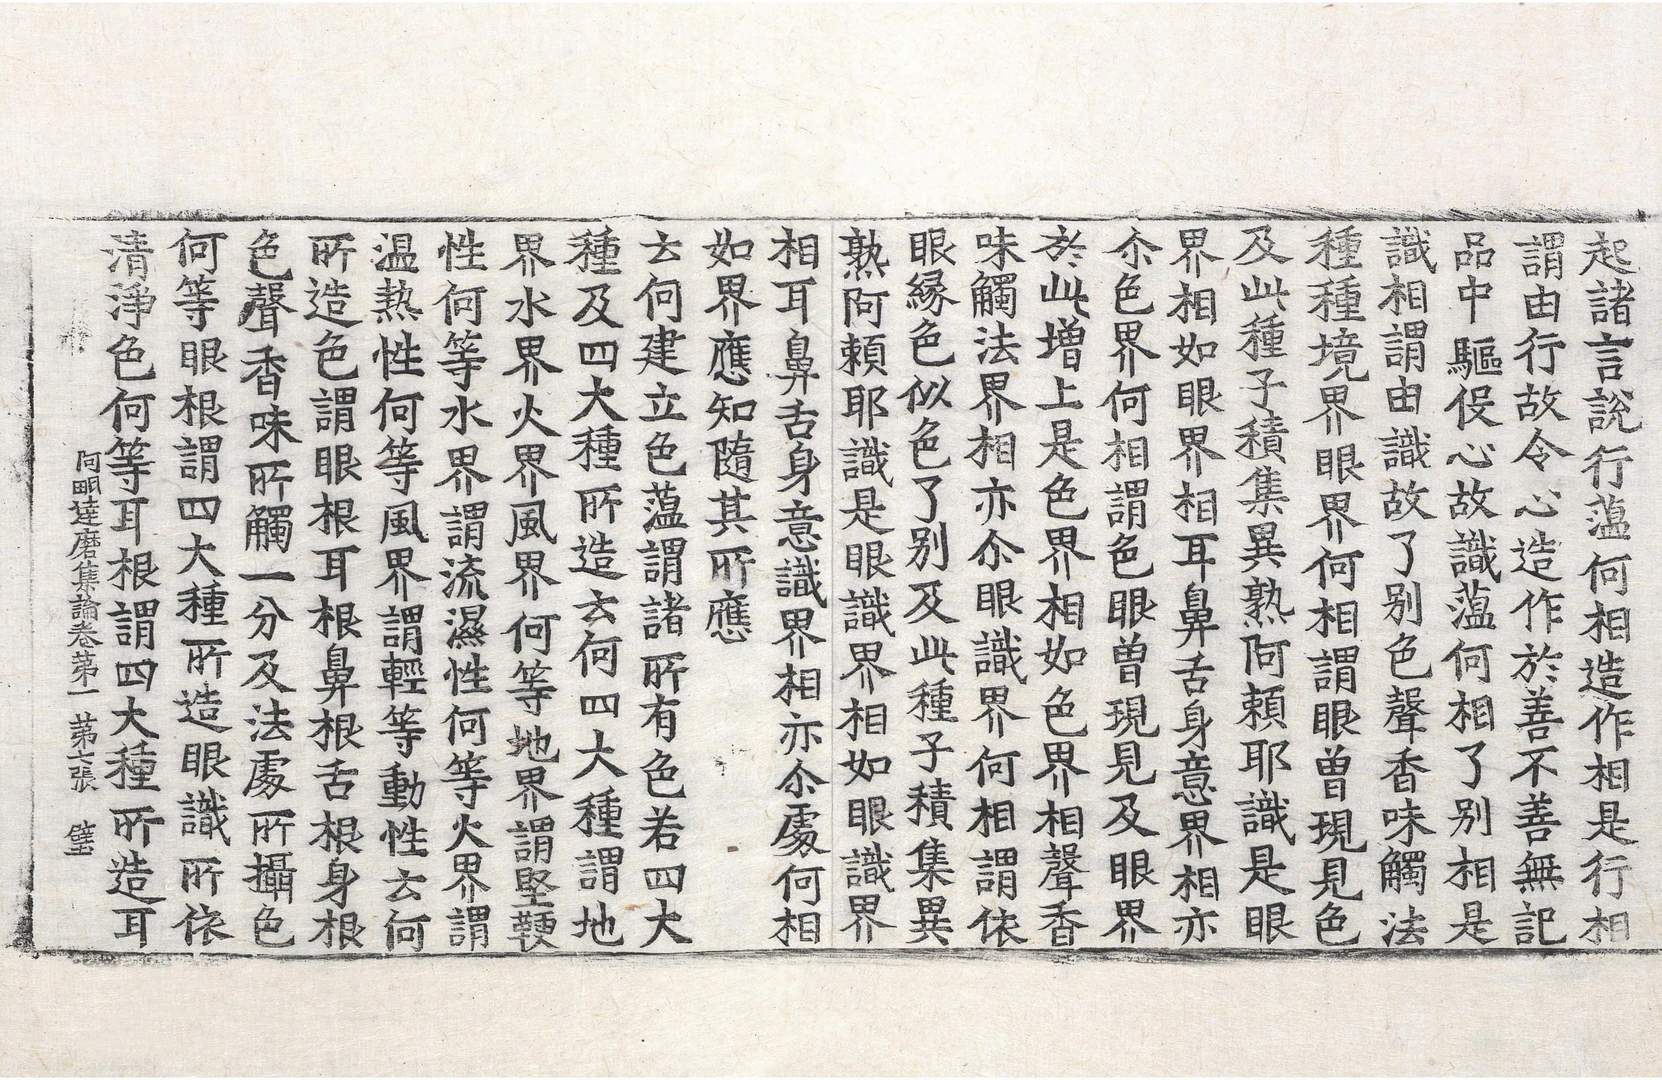 起諸言說行蕰何相造作相是行相
謂由行故令心造作於善不善無記
品中驅役心故識蕰何相了别相是
識相謂由識故了别色聲香味觸法
種種境界眼界何相謂眼曽現見色
及此種子積集異熟阿頼耶識是眼
界相如眼界相耳鼻舌身意界相亦
尒色界何相謂色眼曽現見及眼界
於此增上是色界相如色界相聲香
味觸法界相亦尒眼識界何相謂依
眼縁色似色了别及此種子積集異
熟阿頼耶識是眼識界相如眼識界
相耳鼻舌身意識界相亦尒處何相
如界應知隨其所應
云何建立色蕰謂諸所有色若四大
種及四大種所造云何四大種謂地
界水界火界風界何等地界謂堅鞕
性何等水界謂流濕性何等火界謂
温熱性何等風界謂輕等動性云何
所造色謂眼根耳根鼻根舌根身根
色聲香味所觸一分及法處所攝色
何等眼根謂四大種所造眼識所依
清淨色何等耳根謂四大種所造耳
阿毗達磨集論卷第一 第七張 璧